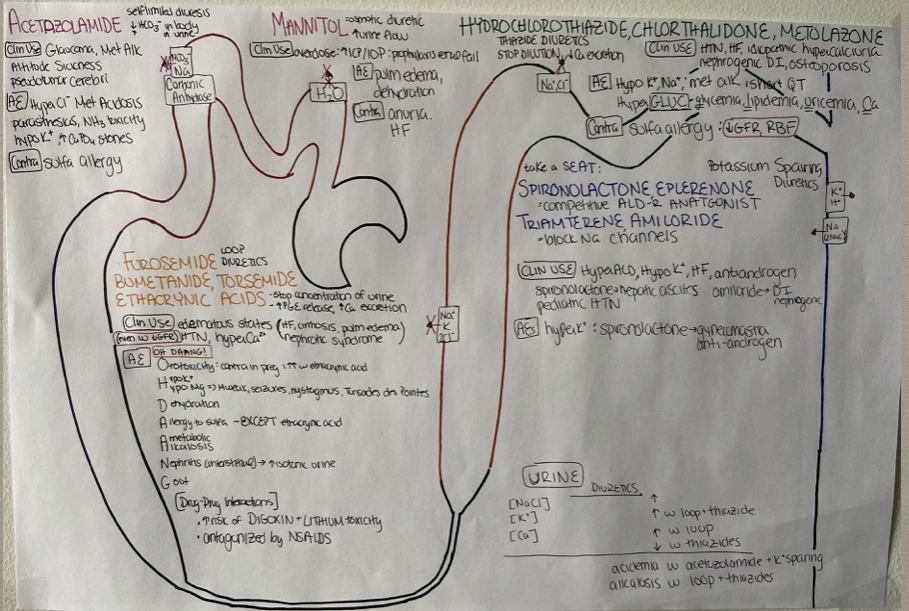 ACETAZOLAMIDE
self limited diuresis
↓ HCO3⁻ in body
↑ in urine
Clin Use Glaucoma, Met Alk
Altitude Sickness
pseudotumor cerebri
AE HyperCl⁻ Met Acidosis
parasthesias, NH3 toxicity
hypo K⁺ ↑ CaPO4 stones
Contra sulfa allergy
HCO3
Na
Carbonic
Anhydrase
MANNITOL -osmotic diuretic
↑ urine flow
Clin Use overdose: ↑ICP/IOP:
AE pulm edema,
dehydration
Contra anuria.
HF
H2O
HYDROCHLOROTHIAZIDE, CHLORTHALIDONE, METOLAZONE
THIAZIDE DIURETICS
STOP DILUTION, ↓ Ca excretion
Clin Use HTN, HF, idiopathic hypercalciuria
nephrogenic DI, osteoporosis
Na⁺Cl⁻
AE Hypo K⁺, Na⁺; met alk short QT
Hyper GLUC - glycemia, lipidemia, uricemia, Ca
Contra sulfa allergy : ↓GFR, RBF
take a SEAT:
Potassium Sparing
Diuretics
SPIRONOLACTONE, EPLERENONE
-competitive ALD-R ANATGONIST
TRIAMTERENE, AMILORIDE
-block Na channels
K⁺
H⁺
Na
(ENaC)
CLIN USE HyperALD, Hypo K⁺, HF, antiandrogen
spironolactone→hepatic ascites amiloride→DI
nephrogenic
pediatric HTN
AEs hyperK⁺ : spironolactone→gynecomastia
anti-androgen
FUROSEMIDE LOOP
DIURETICS
BUMETANIDE, TORSEMIDE
ETHACRYNIC ACIDS -stop concentration of urine
-↑PGE release, ↑Ca excretion
Clin Use edematous states (HF, cirrhosis, pulm edema)
(even w ↓GFR) HTN, hyperCa²⁺ (nephrotic syndrome)
AE OH DAANG!
Ototoxicity: contra in preg ↑↑ w ethacrynic acid
Hypo K⁺
Hypo Mg => muscle weak, seizures, nystagmus, Torsades des Pointes
Dehydration
Allergy to sulfa - EXCEPT etracrynic acid
Ametabolic
Alkalosis
Nephritis (interstitial) → ↑isotonic urine
Gout
[Drug-Drug Interactions]
• ↑risk of DIGOXIN + LITHIUM toxicity
• antagonized by NSAIDS
Na⁺
K
2Cl⁻
URINE
DIURETICS ↑
[NaCl] ↑ w loop + thiazide
[K⁺] ↑ w loop
[Ca] ↓ w thiazides
acidemia w acetazolamide + K⁺ sparing
alkalosis w loop + thiazides